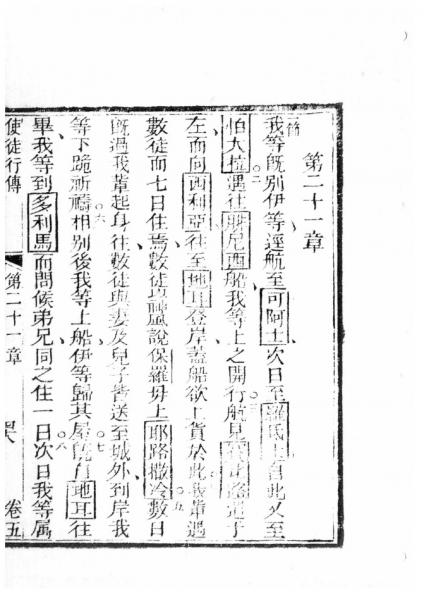 第二十一章
節我等既別伊等逕航至可阿士次日至羅氏士自此又至
怕大拉遇往腓尼西船我等上之開行航見
左而向西利亞徃至地耳登岸蓋船欲上貨於此我輩遇
數徒而七日住焉數徒以靈說保羅毋上耶路撒冷數日
既過我輩起身徃數徒與妻及兒子皆送至城外到岸我
等下跪祈禱相別後我等上船伊等歸其屋既自地耳往
畢我等到多利馬而問候弟兄同之住一日次日我等属
使徒行傳 第二十一章 卷五